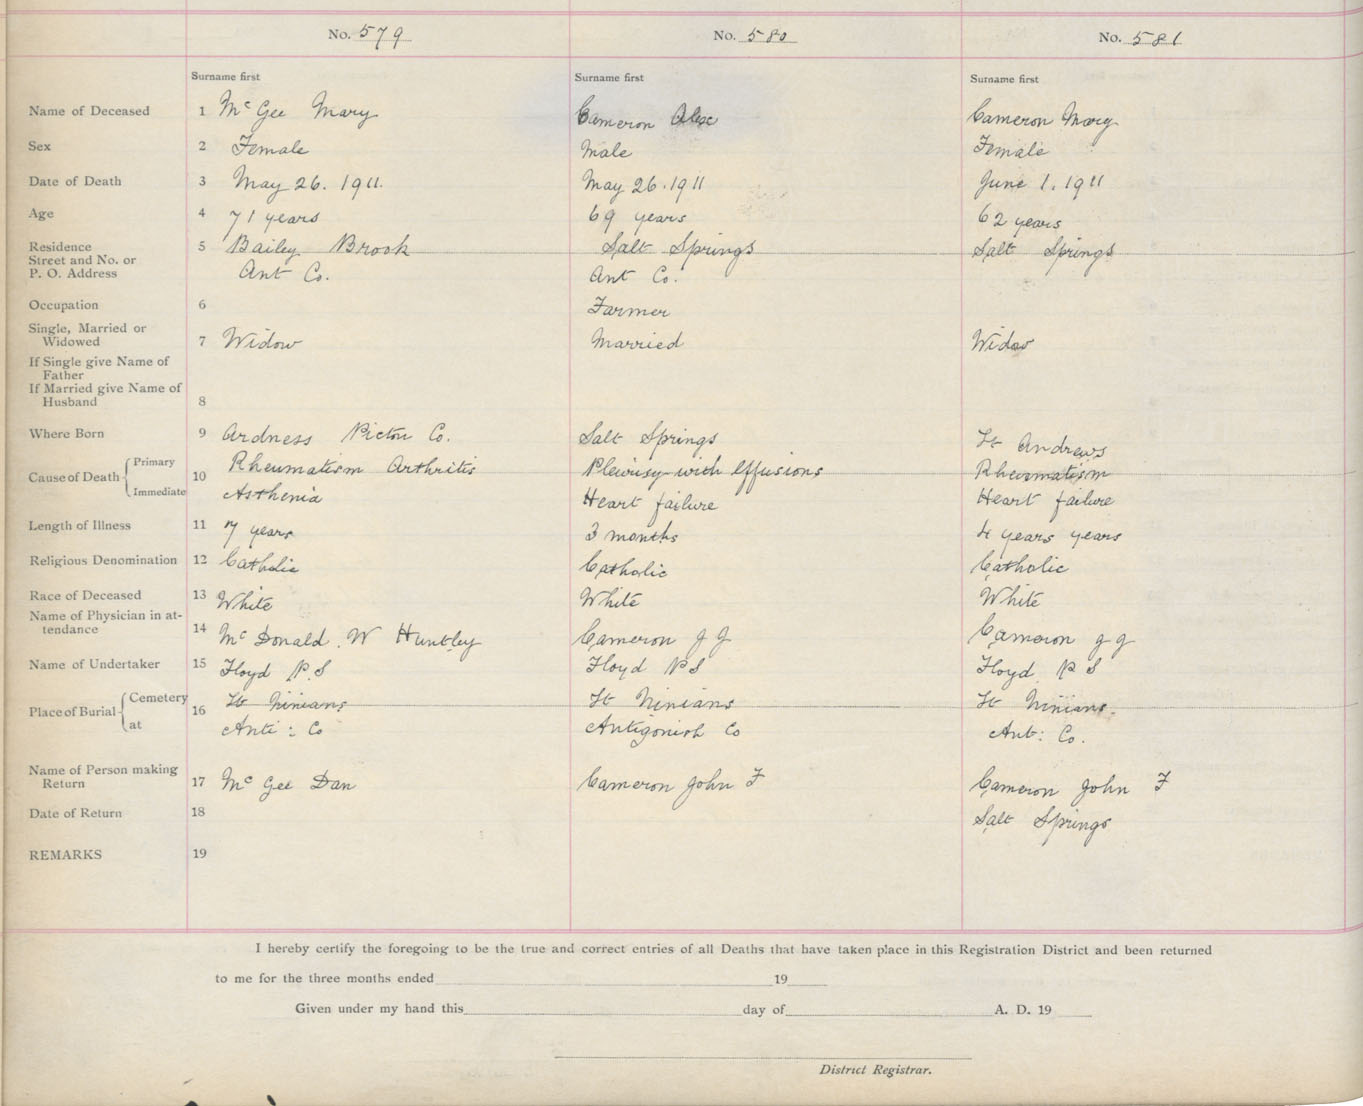 No. 579 No. 580 No. 581
Surname first Surname first Surname first
Name of Deceased 1 McGee Mary Cameron Alex Cameron Mary
Sex 2 Female Male Female
Date of Death 3 May 26. 1911. May 26. 1911 June 1. 1911
Age 4 71 years 69 years 62 years
Residence 5 Bailey Brook Salt Springs Salt Springs
Street and No. or
P. O. Address Ant Co. Ant Co.
Occupation 6 Farmer
Single, Married or
Widowed 7 Widow Married Widow
If Single give Name of
Father
If Married give Name of
Husband 8
Where Born 9 Ardness Pictou Co. Salt Springs St Andrews
Cause of Death Primary 10 Rheumatism Arthritis Pleurisy with Effusions Rheumatism
Immediate Asthenia Heart failure Heart failure
Length of Illness 11 7 years 3 months 4 years years
Religious Denomination 12 Catholic Catholic Catholic
Race of Deceased 13 White White White
Name of Physician in at-
tendance 14 McDonald. W Huntley Cameron J J Cameron J J
Name of Undertaker 15 Floyd P.S Floyd P S Floyd P S
Place of Burial Cemetery 16 St Ninians St Ninians St Ninians.
at Anti: Co Antigonish Co Ant: Co.
Name of Person making
Return 17 McGee Dan Cameron John F Cameron John F
Date of Return 18 Salt Springs
REMARKS 19
I hereby certify the foregoing to be the true and correct entries of all Deaths that have taken place in this Registration District and been returned
to me for the three months ended 19
Given under my hand this day of A. D. 19
District Registrar.